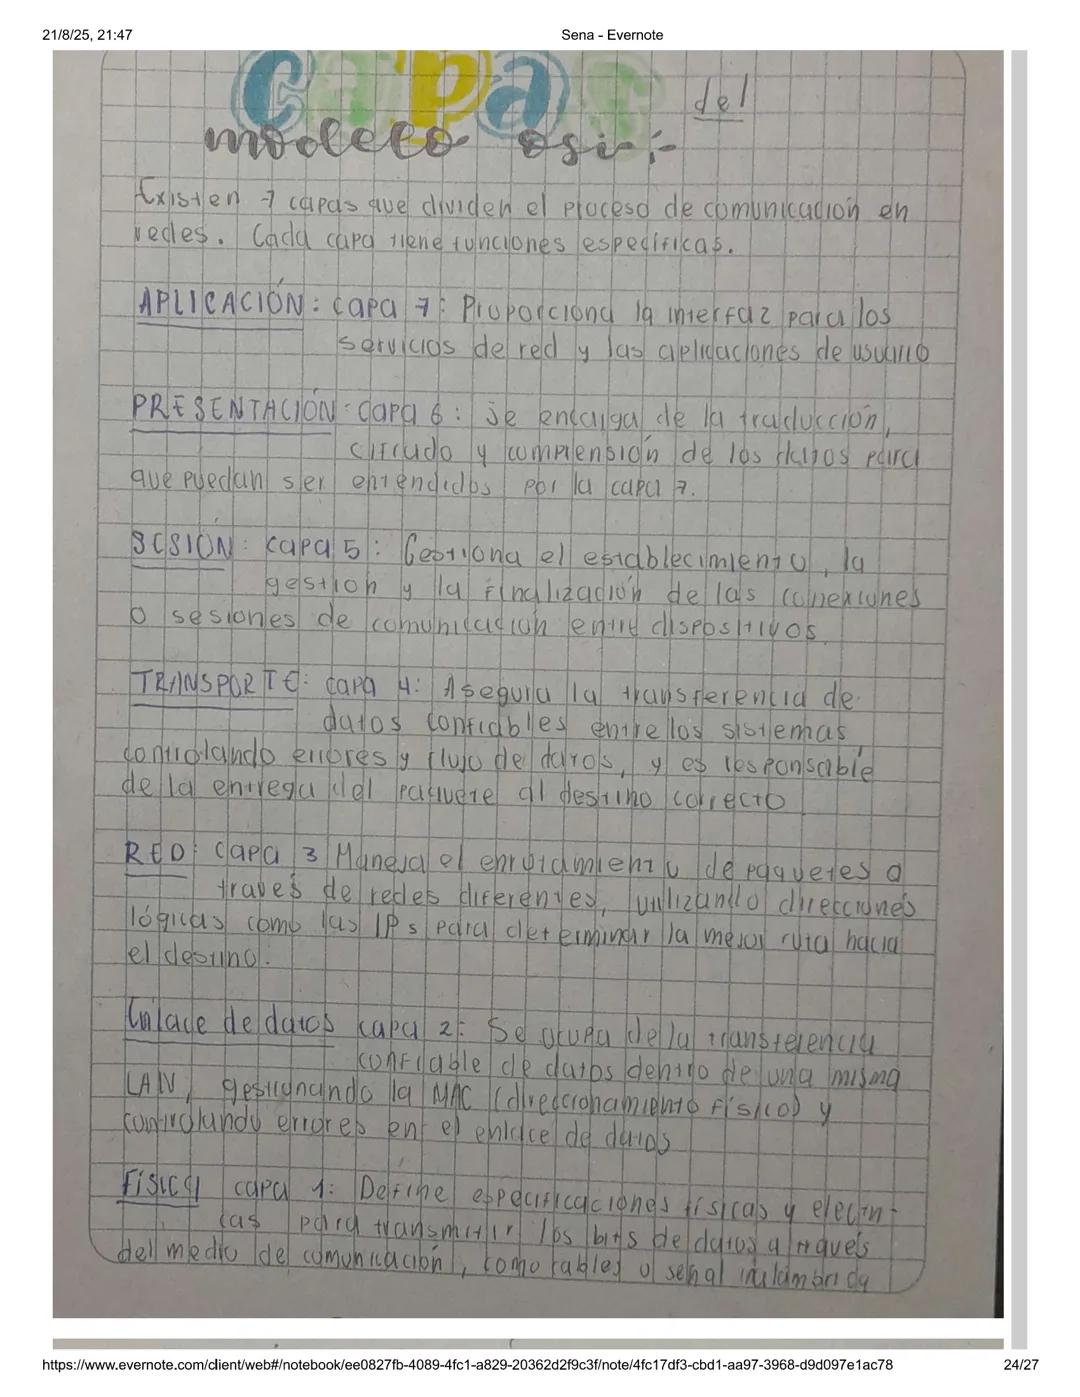 21/8/25, 21:47
Sena - Evernote
Capas del
modelo osi:-
Existen 7 capas que dividen el proceso de comunicación en
redes. Cada capa tiene funciones especificas.
APLICACIÓN: capa 7: Proporciona la interfaz para los
servicios de red y las aplicaciones de usuario
PRESENTACIÓN: capa 6: Se encarga de la traducción,
cifrado y comprensión de los datos para
que puedan ser entendidos por la capa 7.
SESIÓN: capa 5: Gestiona el establecimiento, la
gestion y la finalización de las conexiones
o sesiones de comunicacion entre dispositivos.
TRANSPORTE: capa 4: Asegura la transferencia de
datos confiables entre los sistemas
controlando errores y flujo de datos, y es responsable
de la entrega del paquete al destino correcto
RED: Capa 3 Maneja el enrutamiento de paquetes a
través de redes diferentes, utilizando direcciones
lógicas como las IPs para determinar la mejor ruta hacia
el destino.
Enlace de datos capa 2: Se ocupa de la transferencia
confiable de datos dentro de una misma
LAN, gestionando la MAC (direccionamiento físico) y
controlando errores en el enlace de datos
Física capa 1: Define especificaciones físicas y electri-
cas para transmitir los bits de datos a través
del medio de comunicación, como cables o señal inalambrida
https://www.evernote.com/client/web#/notebook/ee0827fb-4089-4fc1-a829-20362d2f9c3f/note/4fc17df3-cbd1-aa97-3968-d9d097e1ac78
24/27